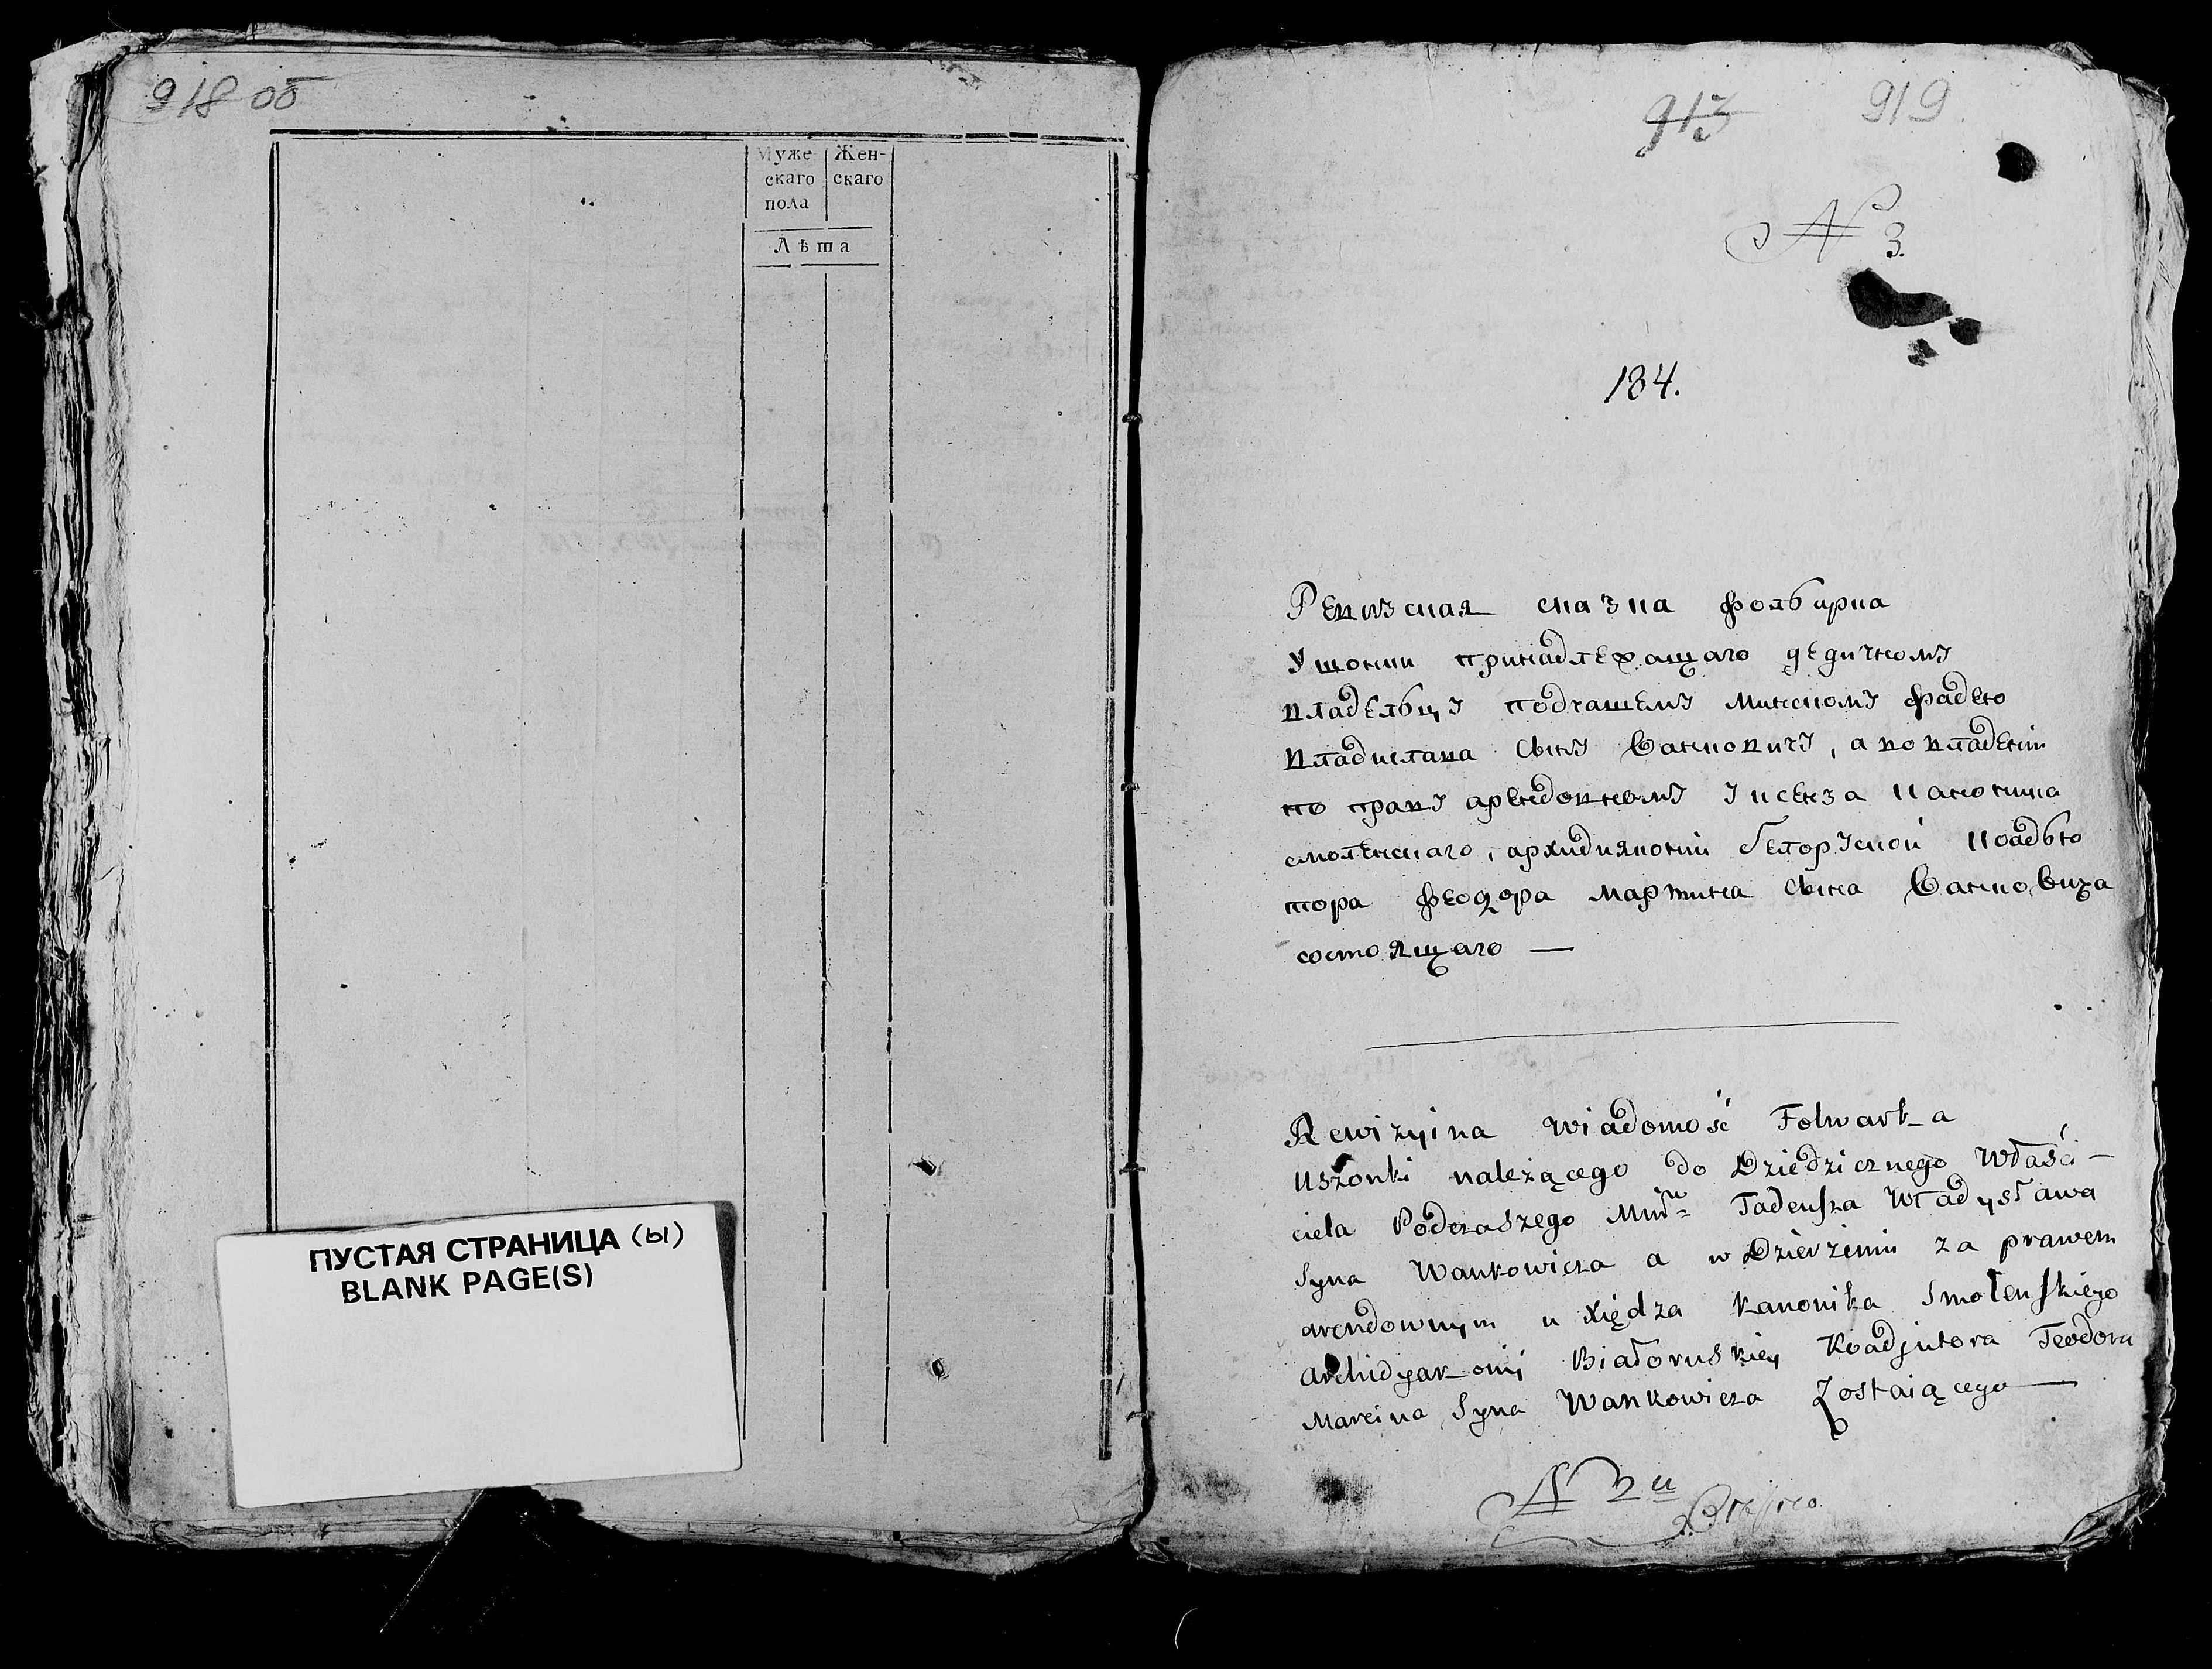 918 об
Муже
скаго
пола
Жен-
скаго
Лѣта
ПУСТАЯ СТРАНИЦА (ы)
BLANK PAGE(S)
913
919
№ 3.
184.
Ревизская сказка фольварка
Ушонки принадлежащаго дедичному
владельцу подчашему минскому фадею
владислава сыну Ванковичу, а во владении
по праву арендовному у ксенза каноника
смоленскаго, архидияконии белоруской коадью
тора феодора мартина сына Ванковича
состоящаго —
Rewizyina Wiadomość Folwarka
Uszonki należącego do Dziedzicznego Właści-
ciela Podczaszego Miń Tadeusza Władysława
Syna Wankowicza a w Dzierżeniu za prawem
arendownym u Xiędza Kanonika Smoleńskiego
Archidyakonij Białoruskiey Koadjutora Teodora
Marcina Syna Wankowicza Zostaiącego —